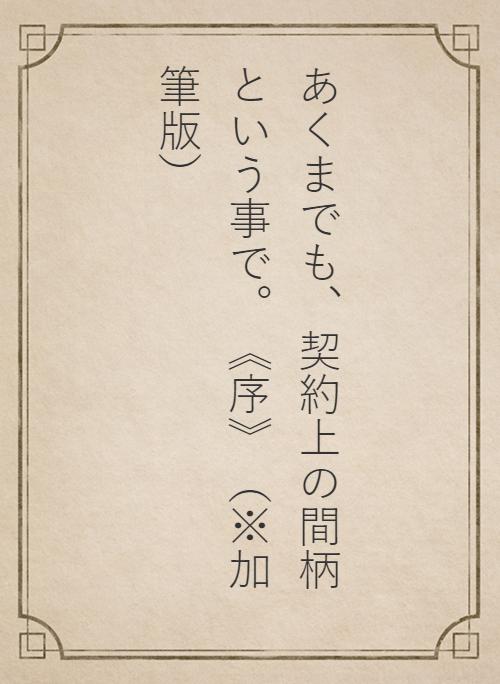 あくまでも、契約上の間柄
という事で。　《序》　（※加
筆版）